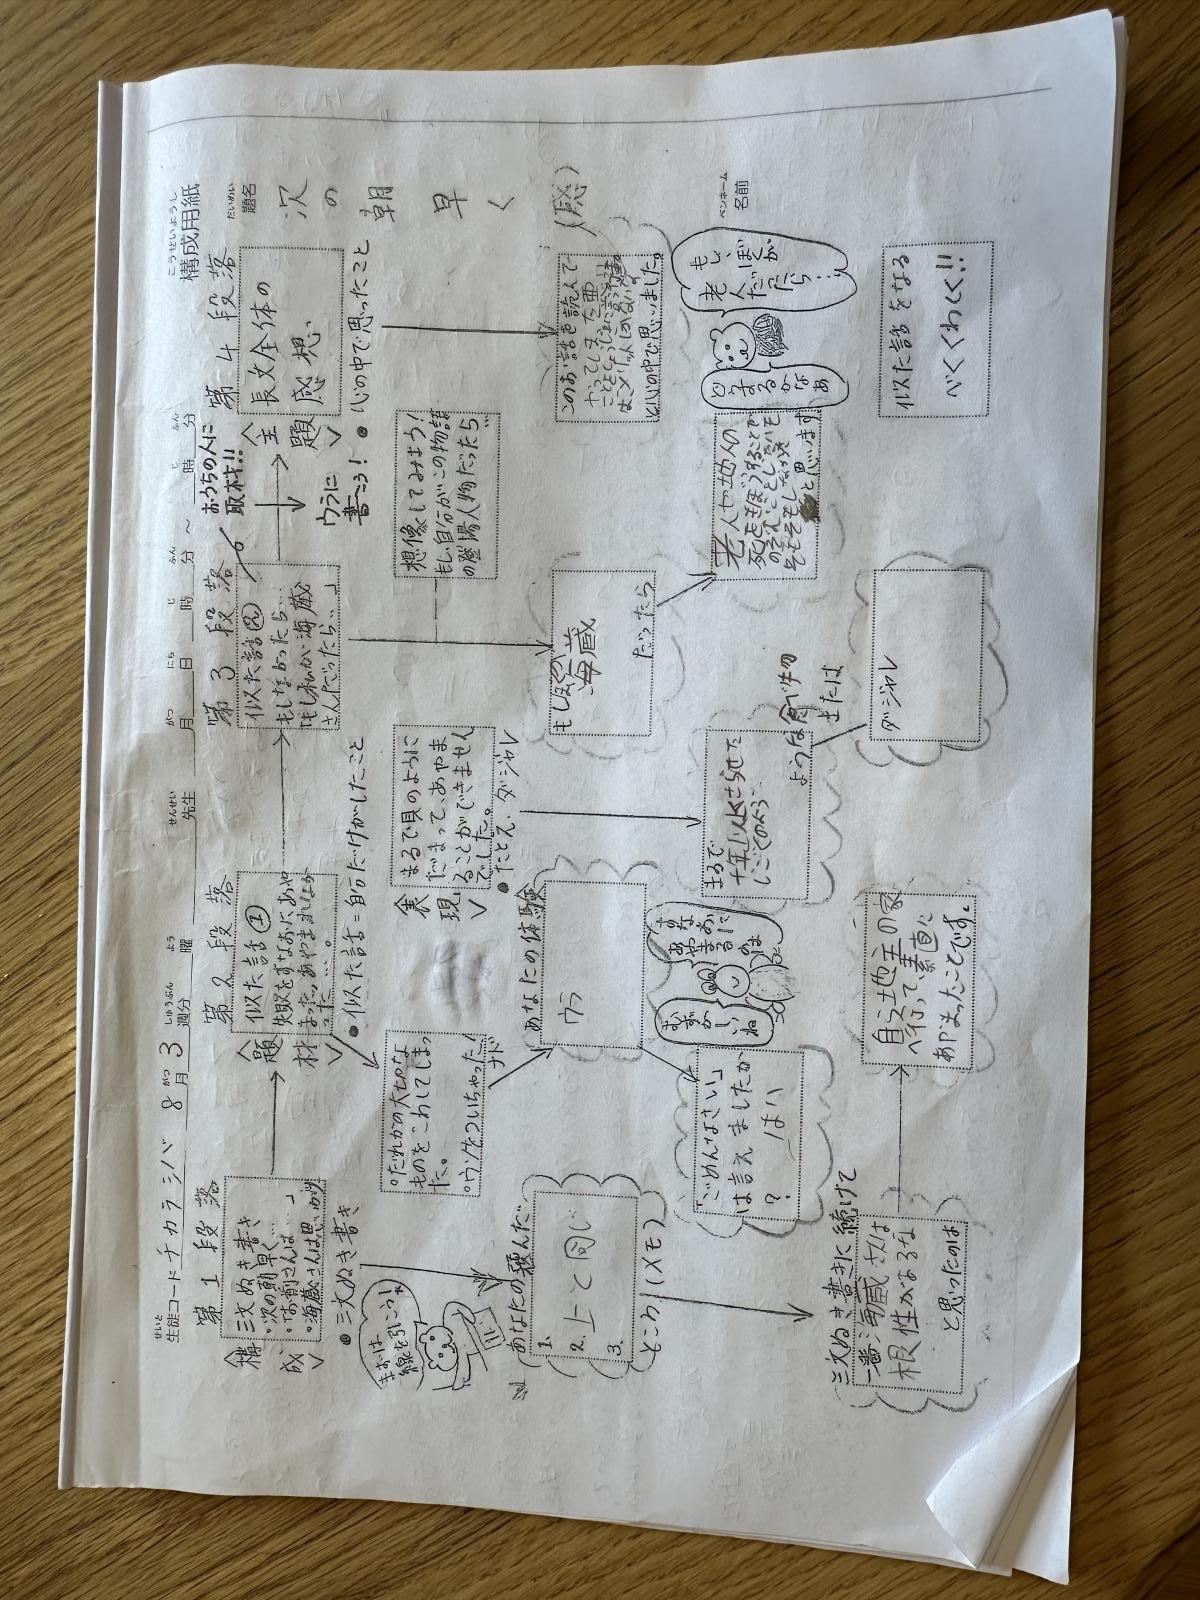 こうせいようし
構成用紙
せいと
生徒コード チカラシバ 8 がつ 月 3 しゅうぶん 週分 よう 曜 せんせい 先生 がつ 月 にち 日 じ 時 ふん 分 ~ じ 時 ふん 分
だいめい
題名
次の朝早く(感)
ペンネーム
名前
第1段落
<構成>
三文ぬき書き
・次の朝早く…
・「お前さんは…」
・海蔵さんは思いがけ
●三文ぬき書き
まずは
線を引こう!
あなたの選んだ
1.
2. 上と同じ
3.
ところ(メモ)
三文ぬき書きに続けて
一番海蔵さんは
根性があるな
と思ったのは
自ら地主の家
へ行って素直に
あやまったことです。
第2段落
<題材>
似た話①
失敗をすなおにあや
まった、あやまれなか
った…。
●似た話=自分だけがしたこと
。だれかの大切な
ものをこわしてしまっ
た。
。ウソをついちゃった
ナド
あなたの体験
ウラ
すなおに
あやまるのは
むずかしいね
「ごめんなさい」
は言えましたか
?
はい
<表現>
まるで貝のように
だまって、あやま
ることができません
でした。
●たとえ、ダジャレ
まるで
ような食べ物
または
ダジャレ
第3段落
似た話②
もしなかったら…
「もし私が海蔵
さんだったら…」
おうちの人に
取材!!
ウラに
書こう!
想像してみよう!
もし、自分がこの物語
の登場人物だったら…
もしぼくが
海蔵
だったら
老人や他人の
と思います
第4段落
<主題>
長文全体の
感想
●心の中で思ったこと
このお話を読んで
と心の中で思いました。
もし、ぼくが
老人だったら…
似た話をなる
べくくわしく!!